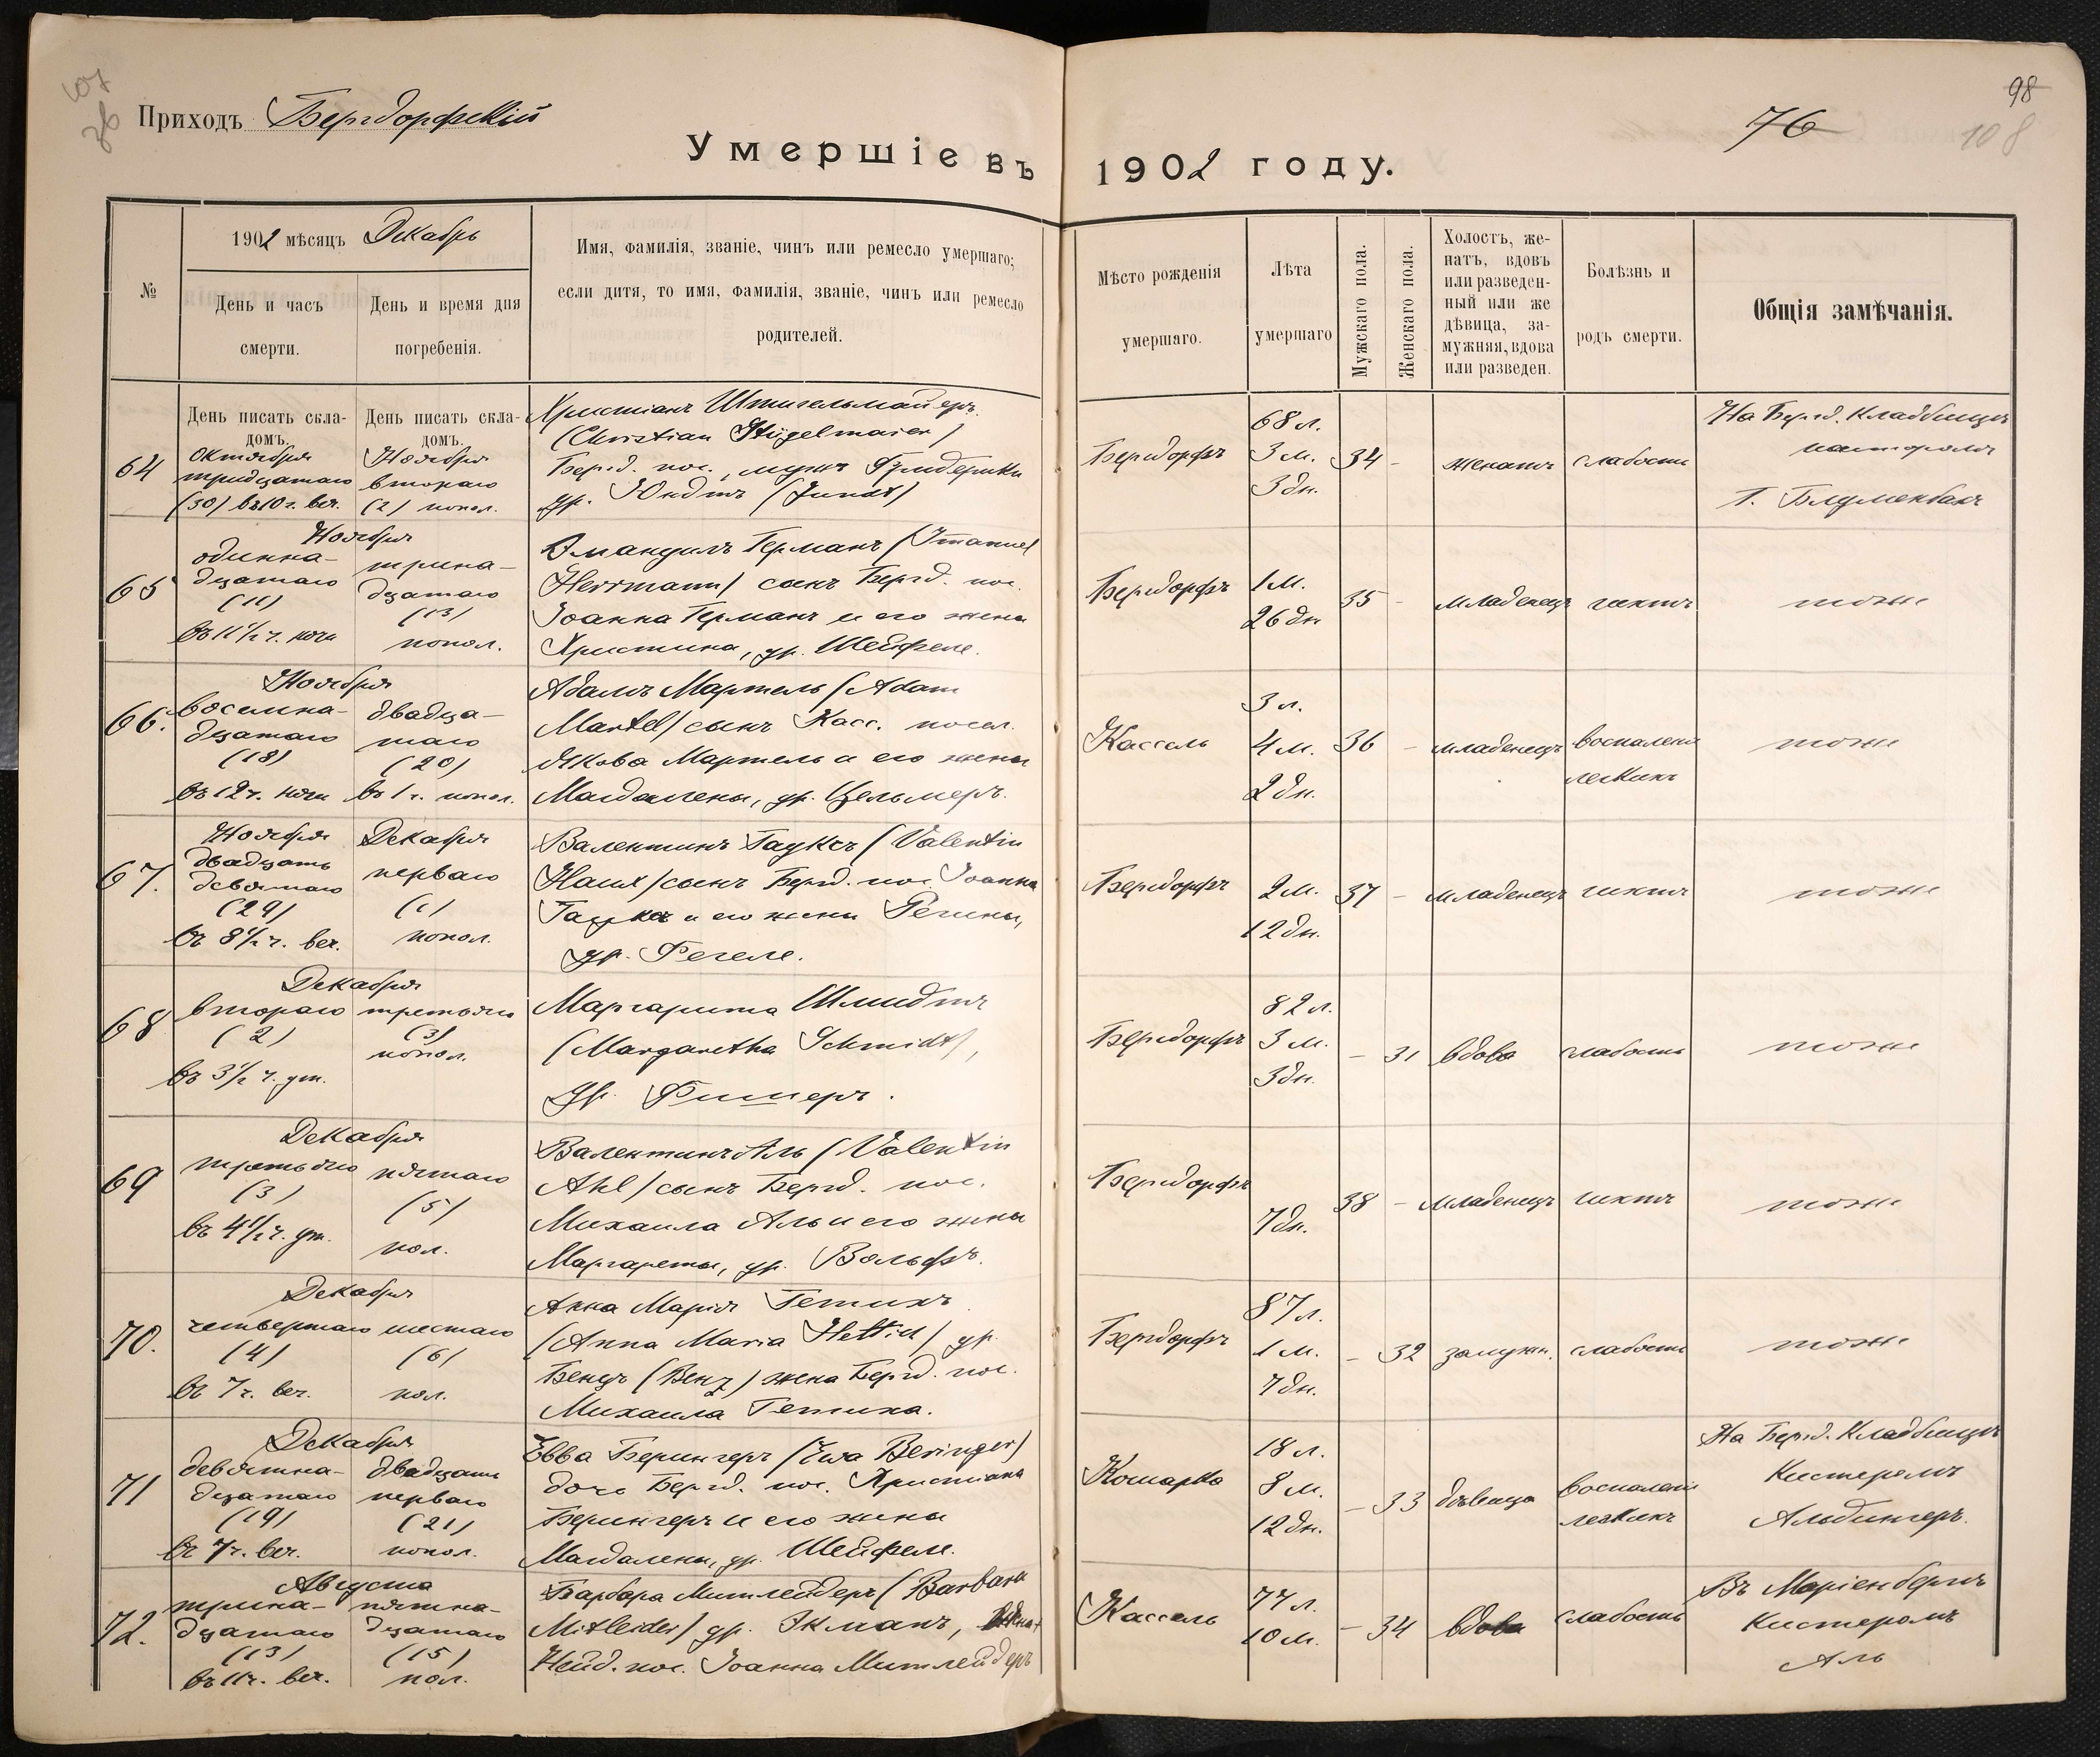 107
Приходъ Бергдорфскій
76
98
108
Умершіе въ 1902 году.
№
1902 мѣсяцъ Декабрь
День и часъ смерти.
День и время дня погребенія.
Имя, фамилія, званіе, чинъ или ремесло умершаго;
если дитя, то имя, фамилія, званіе, чинъ или ремесло
родителей.
Мѣсто рожденія
умершаго.
Лѣта
умершаго
Мужскаго пола.
Женскаго пола.
Холостъ, же-
натъ, вдовъ
или разведен-
ный или же
дѣвица, за-
мужняя, вдова
или разведен.
Болѣзнь и
родъ смерти.
Общія замѣчанія.
День писать скла-
домъ.
День писать скла-
домъ.
64
Октября
тридцатаго
(30) въ 10 ч. веч.
Ноября
втораго
(2) попол.
Христіанъ Штигельмайеръ
(Christian Stügelmaier)
Бергд. пос., мужъ Фридерики
ур. Юндтъ (Jundt)
Бергдорфъ
68 л.
3 м.
3 дн.
34 -
женатъ
слабость
На Бергд. кладбищѣ
пасторомъ
Г. Блуменбахъ
65
Ноября
одинна-
дцатаго
(11)
въ 11 1/2 ч. ночи
трина-
дцатаго
(13)
попол.
Эмануилъ Германъ (Immanuel
Herrmann) сынъ Бергд. пос.
Іоанна Германъ и его жены
Христина, ур. Шейфеле.
Бергдорфъ
1 м.
26 дн
35 -
младенецъ
гихтъ
тоже
66.
Ноября
восемна-
дцатаго
(18)
въ 12 ч. ночи
двадца-
таго
(20)
въ 1 ч. попол.
Адамъ Мартель (Adam
Martel) сынъ Касс. посел.
Якова Мартель и его жены
Магдалены, ур. Цельмеръ.
Кассель
3 л.
4 м.
2 дн.
36 -
младенецъ
воспаленіе
легкихъ
тоже
67.
Ноября
двадцать
девятаго
(29)
въ 8 1/2 ч. веч.
Декабря
перваго
(1)
попол.
Валентинъ Гауксъ (Valentin
сынъ Бергд. пос. Іоанна
и его жены Регины,
ур. Фегеле.
Бергдорфъ
2 м.
12 дн.
37 -
младенецъ
гихтъ
тоже
68
Декабря
втораго
(2)
въ 3 1/2 ч. ут.
третьяго
(3)
попол.
Маргарита Шмидтъ
(Margaretha Schmidt),
Ур. Фишеръ.
Бергдорфъ
82 л.
3 м.
3 дн.
- 31
вдова
слабость
тоже
69
Декабря
третьяго
(3)
въ 4 1/2 ч. ут.
пятаго
(5)
пол.
Валентинъ Аль (Valentin
Ahl) сынъ Бергд. пос.
Михаила Аль и его жены
Маргареты, ур. Вольфъ.
Бергдорфъ
7 дн.
38 -
младенецъ
гихтъ
тоже
70.
Декабря
четвертаго
(4)
въ 7 ч. веч.
шестаго
(6)
пол.
Анна Марія Гетихъ
(Anna Maria Hettich) ур.
Бенцъ (Benz) жена Бергд. пос.
Михаила Гетиха.
Бергдорфъ
87 л.
1 м.
7 дн.
- 32
замужн.
слабость
тоже
71
Декабря
девятна-
дцатаго
(19)
въ 7 ч. веч.
двадцать
перваго
(21)
попол.
Евва Берингеръ (Ewa Beringer)
дочь Бергд. пос. Христіана
Берингеръ и его жены
Магдалены, ур. Шейфеле.
Кошарка
18 л.
8 м.
12 дн.
- 33
дѣвица
воспаленіе
легкихъ
На Бергд. Кладбищѣ
Кистеромъ
Альдингеръ.
72.
Августа
трина-
дцатаго
(13)
въ 11 ч. веч.
пятна-
дцатаго
(15)
пол.
Барбара Митлейдеръ (Barbara
Mitleider) ур. Экманъ,
Нейд. пос. Іоанна Митлейдеръ
Кассель
77 л.
10 м.
- 34
вдова
слабость
Въ Маріенбергѣ
Кистеромъ
Аль